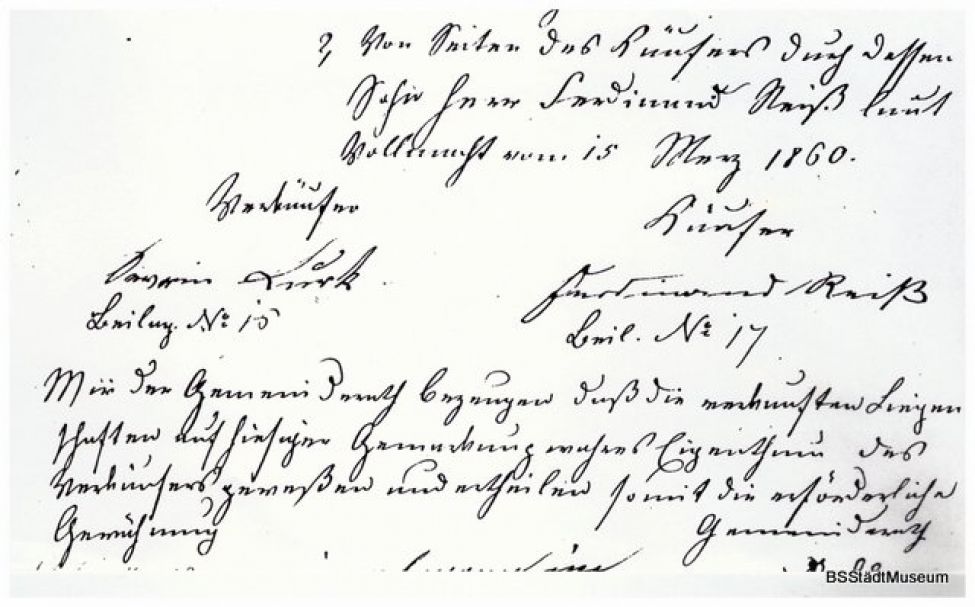 2, Von Seiten des Käufers durch dessen
Sohn Herr Ferdinand Reiß laut
Vollmacht vom 15 Merz 1860.
Verkäufer
Käufer
Lurk
Ferdinand Reiß
Beilag. No 15
Beil. No 17
Wir der Gemeinderath bezeugen daß die verkauften Liegen
schaften auf hiesiger Gemarkung wahres Eigenthum des
Verkäufers geweßen und ertheilen somit die erforderliche
Gewährung
Gemeinderath
BSStadtMuseum